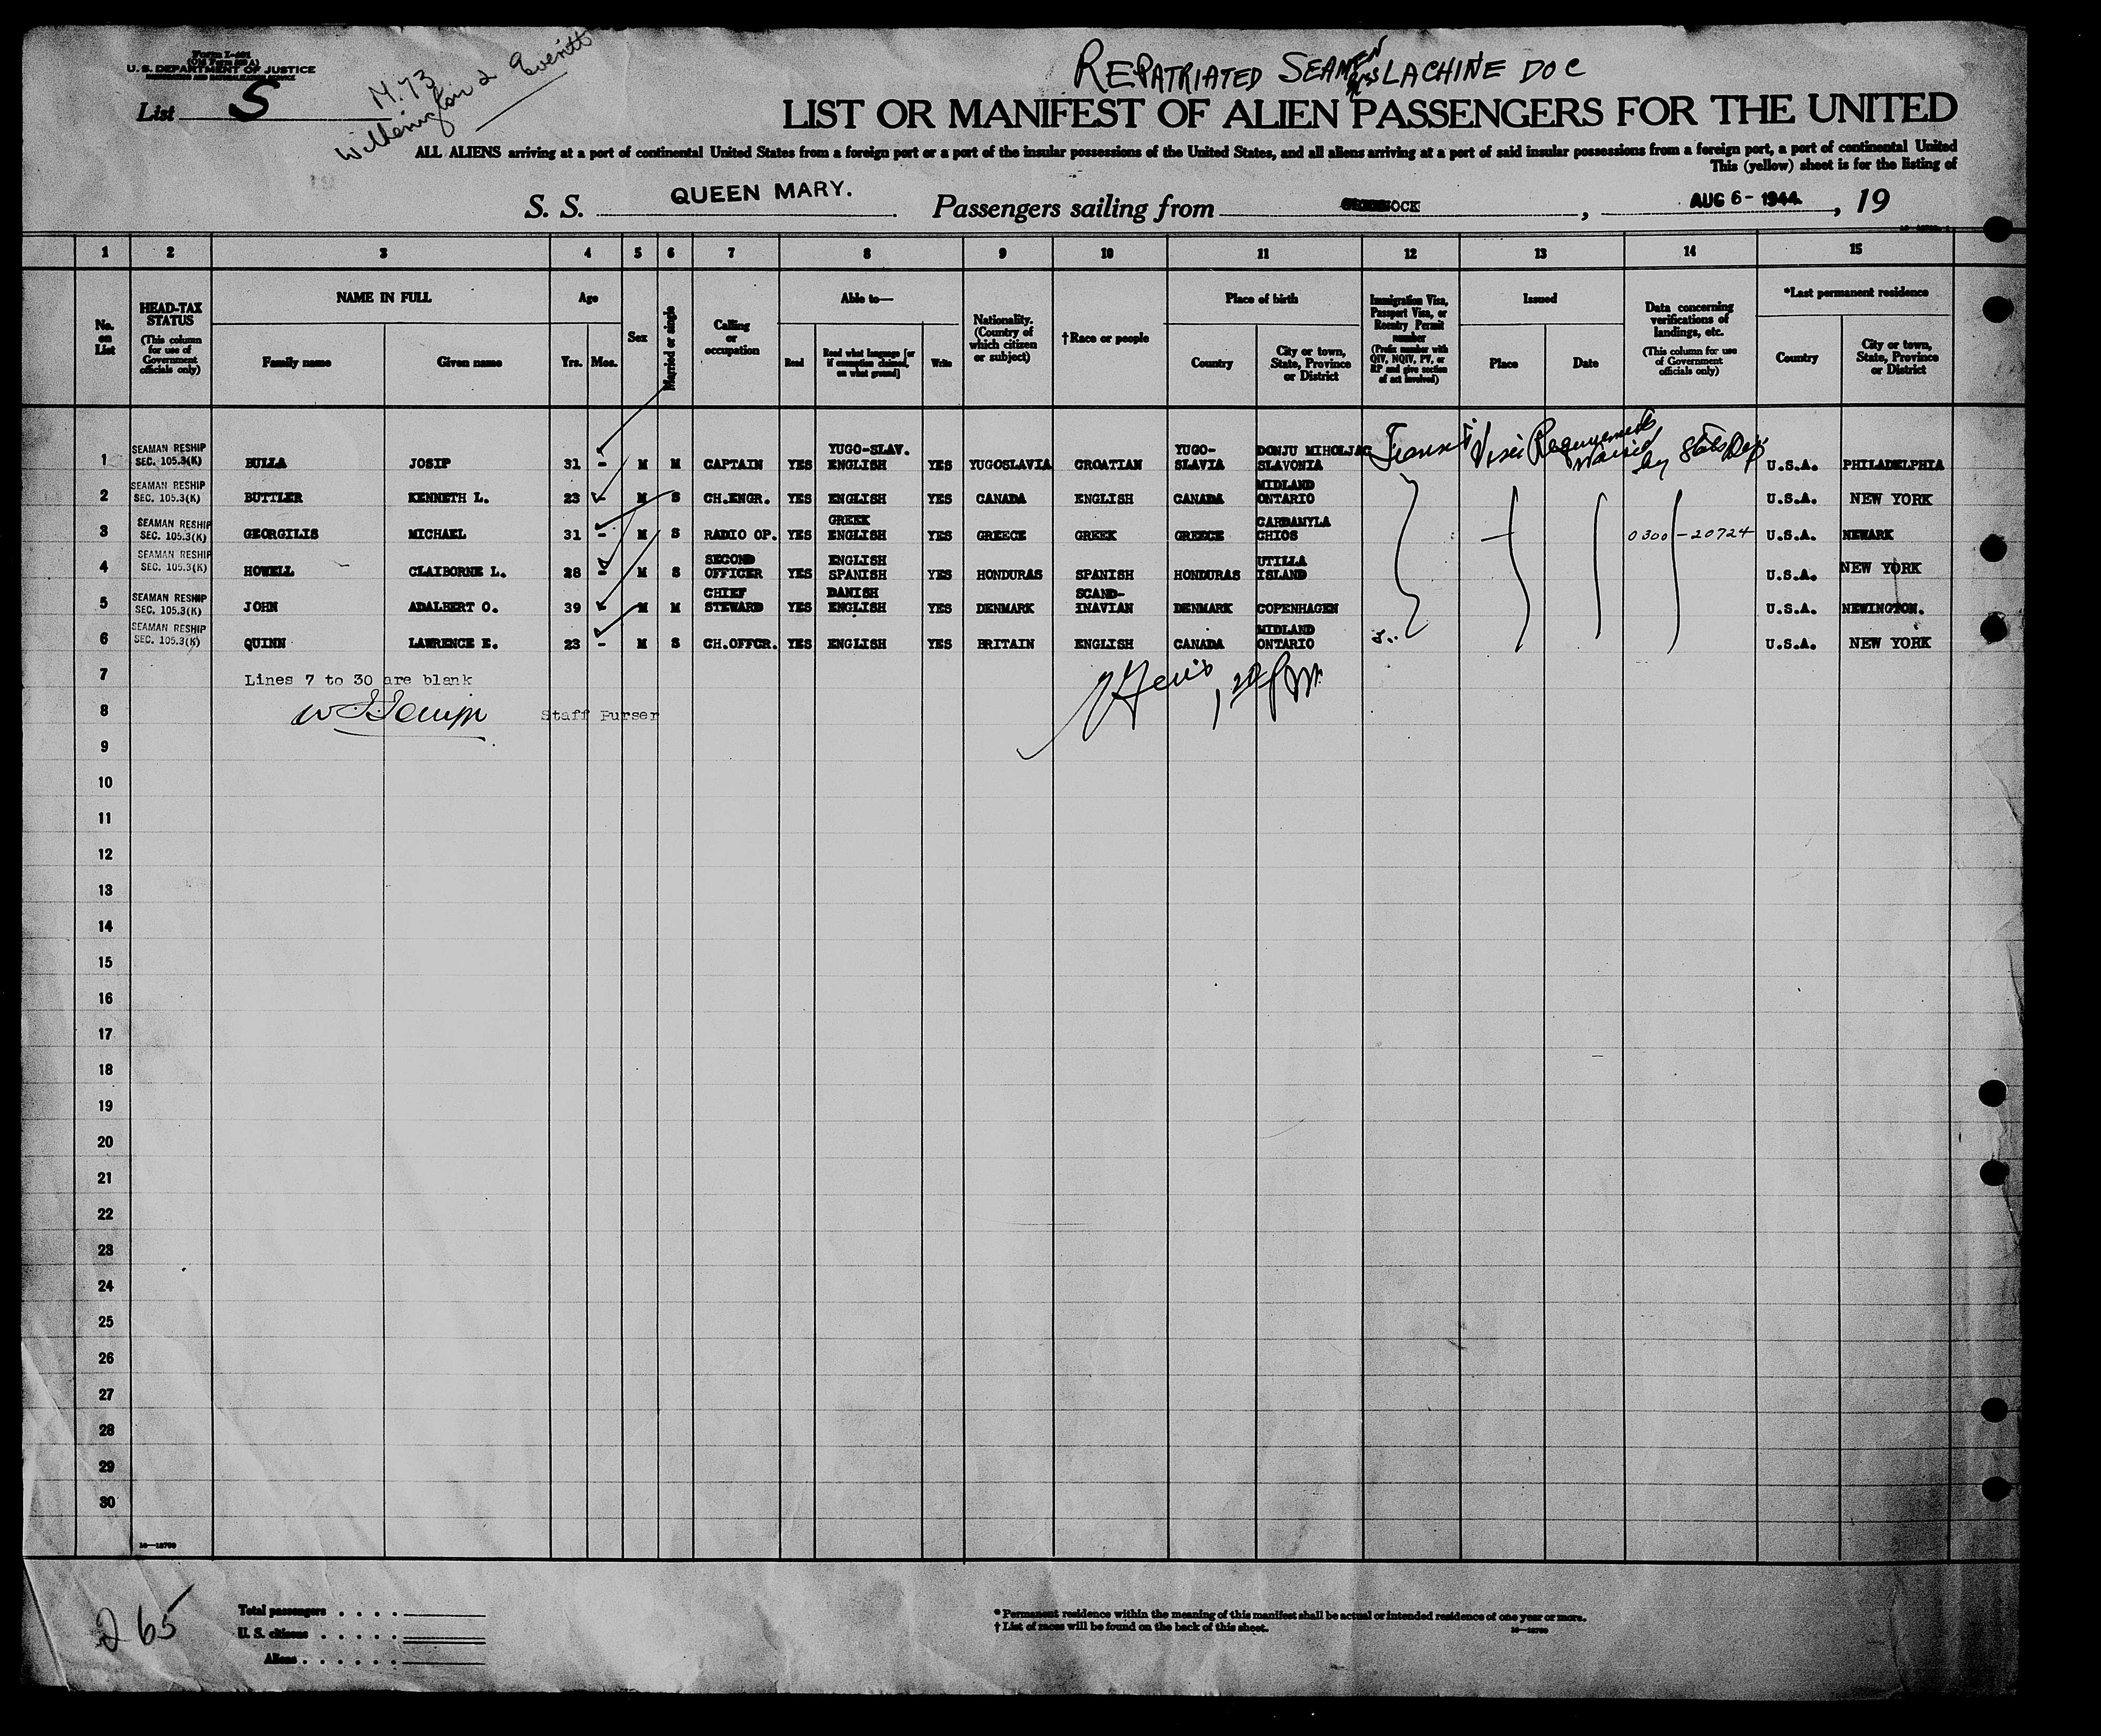 Form I-
U. S. DEPARTMENT OF JUSTICE
IMMIGRATION AND NATURALIZATION SERVICE
M.73
Everitt
REPATRIATED SEAMEN LACHINE DOC
List S
LIST OR MANIFEST OF ALIEN PASSENGERS FOR THE UNITED
ALL ALIENS arriving at a port of continental United States from a foreign port or a port of the insular possessions of the United States, and all aliens arriving at a port of said insular possessions from a foreign port, a port of continental United
This (yellow) sheet is for the listing of
S. S. QUEEN MARY. Passengers sailing from OCK, AUG 6- 1944., 19
1 2 3 4 5 6 7 8 9 10 11 12 13 14 15
No. on List
HEAD-TAX STATUS (This column for use of Government officials only)
NAME IN FULL Family name Given name
Age Yrs. Mos.
Sex
Married or single
Calling or occupation
Able to— Read Read what language [or if exemption claimed, on what ground] Write
Nationality. (Country of which citizen or subject)
†Race or people
Place of birth Country City or town, State, Province or District
Immigration Visa, Passport Visa, or Reentry Permit number (Prefix number with QIV, NQIV, PV, or RP and give section of act involved)
Issued Place Date
Data concerning verifications of landings, etc. (This column for use of Government officials only)
*Last permanent residence Country City or town, State, Province or District
Transit Visa Requirements Waived by State Dep
1 SEAMAN RESHIP SEC. 105.3(K) BULLA JOSIP 31 - M M CAPTAIN YES YUGO-SLAV. ENGLISH YES YUGOSLAVIA CROATIAN YUGO-SLAVIA DONJU MIHOLJAC SLAVONIA U.S.A. PHILADELPHIA
2 SEAMAN RESHIP SEC. 105.3(K) BUTTLER KENNETH L. 23 - M S CH.ENGR. YES ENGLISH YES CANADA ENGLISH CANADA MIDLAND ONTARIO U.S.A. NEW YORK
3 SEAMAN RESHIP SEC. 105.3(K) GEORGILIS MICHAEL 31 - M S RADIO OP. YES GREEK ENGLISH YES GREECE GREEK GREECE CARDAMYLA CHIOS 0300-20724 U.S.A. NEWARK
4 SEAMAN RESHIP SEC. 105.3(K) HOWELL CLAIBORNE L. 28 - M S SECOND OFFICER YES ENGLISH SPANISH YES HONDURAS SPANISH HONDURAS UTILLA ISLAND U.S.A. NEW YORK
5 SEAMAN RESHIP SEC. 105.3(K) JOHN ADALBERT O. 39 - M M CHIEF STEWARD YES DANISH ENGLISH YES DENMARK SCAND-INAVIAN DENMARK COPENHAGEN U.S.A. NEWINGTON.
6 SEAMAN RESHIP SEC. 105.3(K) QUINN LAWRENCE E. 23 - M S CH.OFFCR. YES ENGLISH YES BRITAIN ENGLISH CANADA MIDLAND ONTARIO U.S.A. NEW YORK
7 Lines 7 to 30 are blank
8 Staff Purser
9
10
11
12
13
14
15
16
17
18
19
20
21
22
23
24
25
26
27
28
29
30
16—18760
265
Total passengers . . . .
U. S. citizens . . . . .
Aliens . . . . . .
* Permanent residence within the meaning of this manifest shall be actual or intended residence of one year or more.
† List of races will be found on the back of this sheet.
16—18760